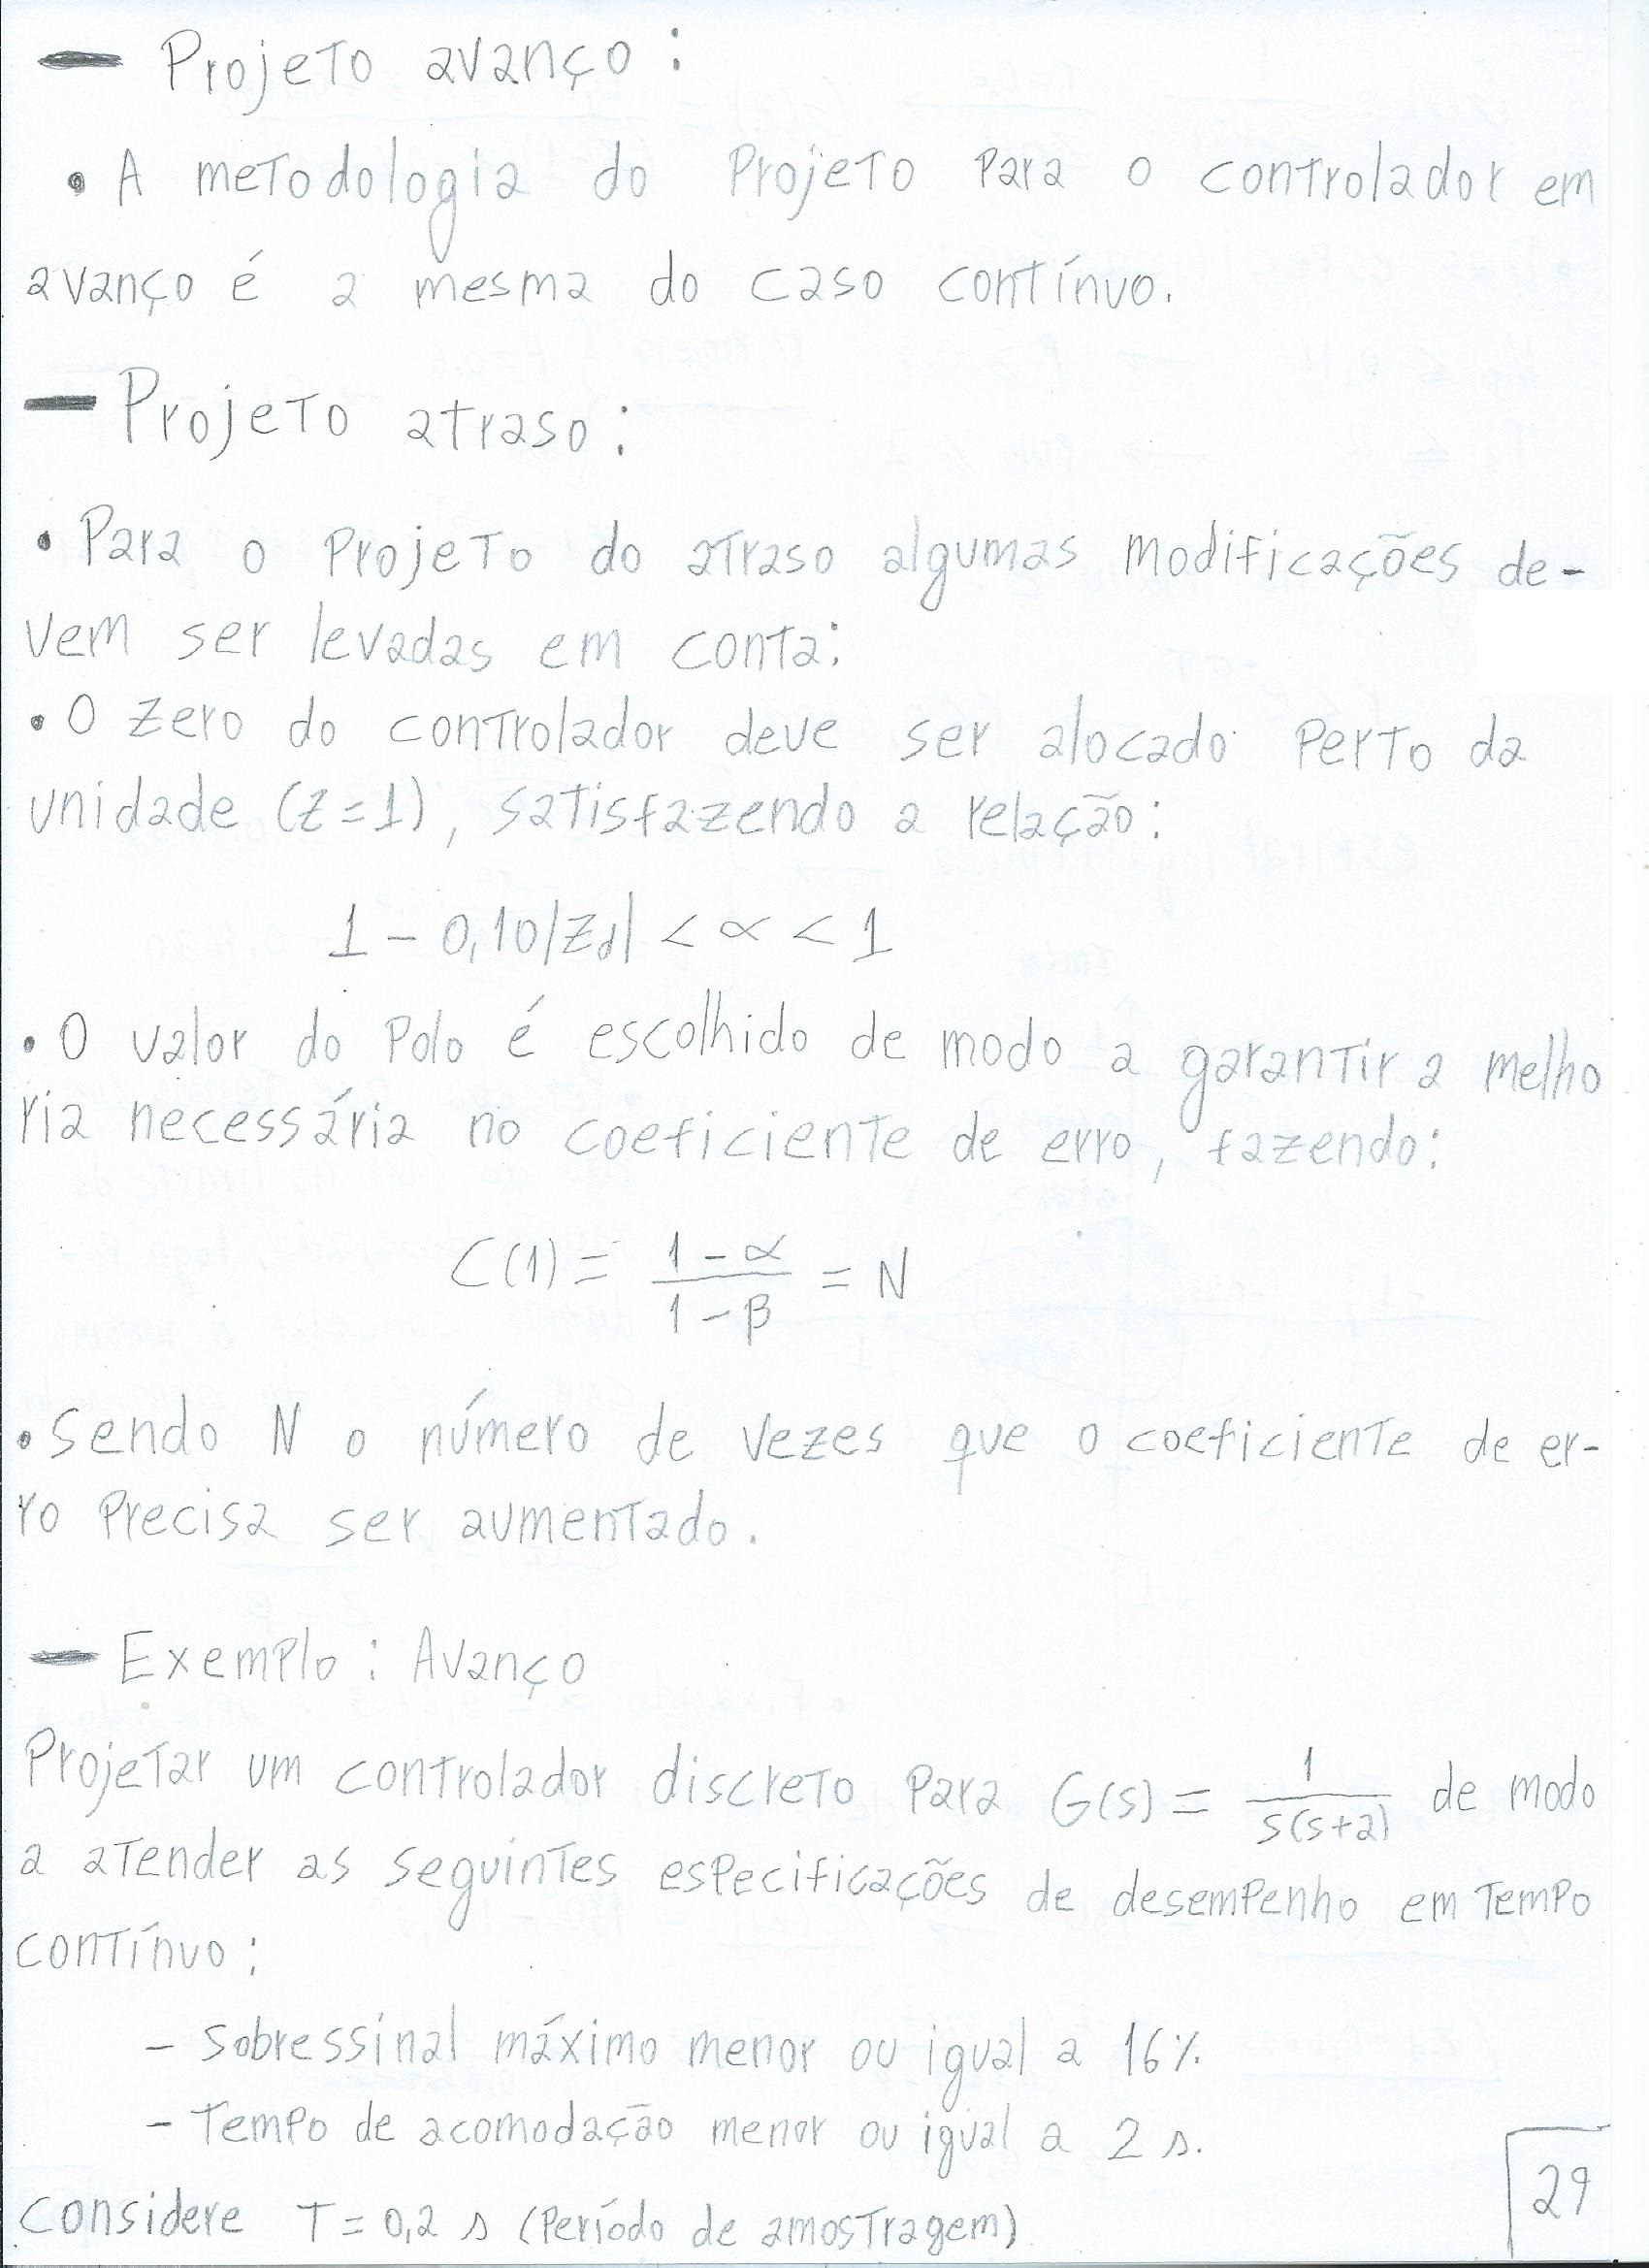 - Projeto avanço:
• A metodologia do projeto para o controlador em
avanço é a mesma do caso contínuo.
- Projeto atraso:
• Para o projeto do atraso algumas modificações de-
vem ser levadas em conta:
• O zero do controlador deve ser alocado perto da
unidade (z=1), satisfazendo a relação:
1 - 0,10|Zd| < α < 1
• O valor do polo é escolhido de modo a garantir a melho
ria necessária no coeficiente de erro, fazendo:
C(1) = (1-α)/(1-β) = N
• Sendo N o número de vezes que o coeficiente de er-
ro precisa ser aumentado.
- Exemplo: Avanço
Projetar um controlador discreto para G(s) = 1/(s(s+2)) de modo
a atender as seguintes especificações de desempenho em tempo
contínuo:
- Sobressinal máximo menor ou igual a 16%.
- Tempo de acomodação menor ou igual a 2 s.
Considere T = 0,2 s (Período de amostragem)
29